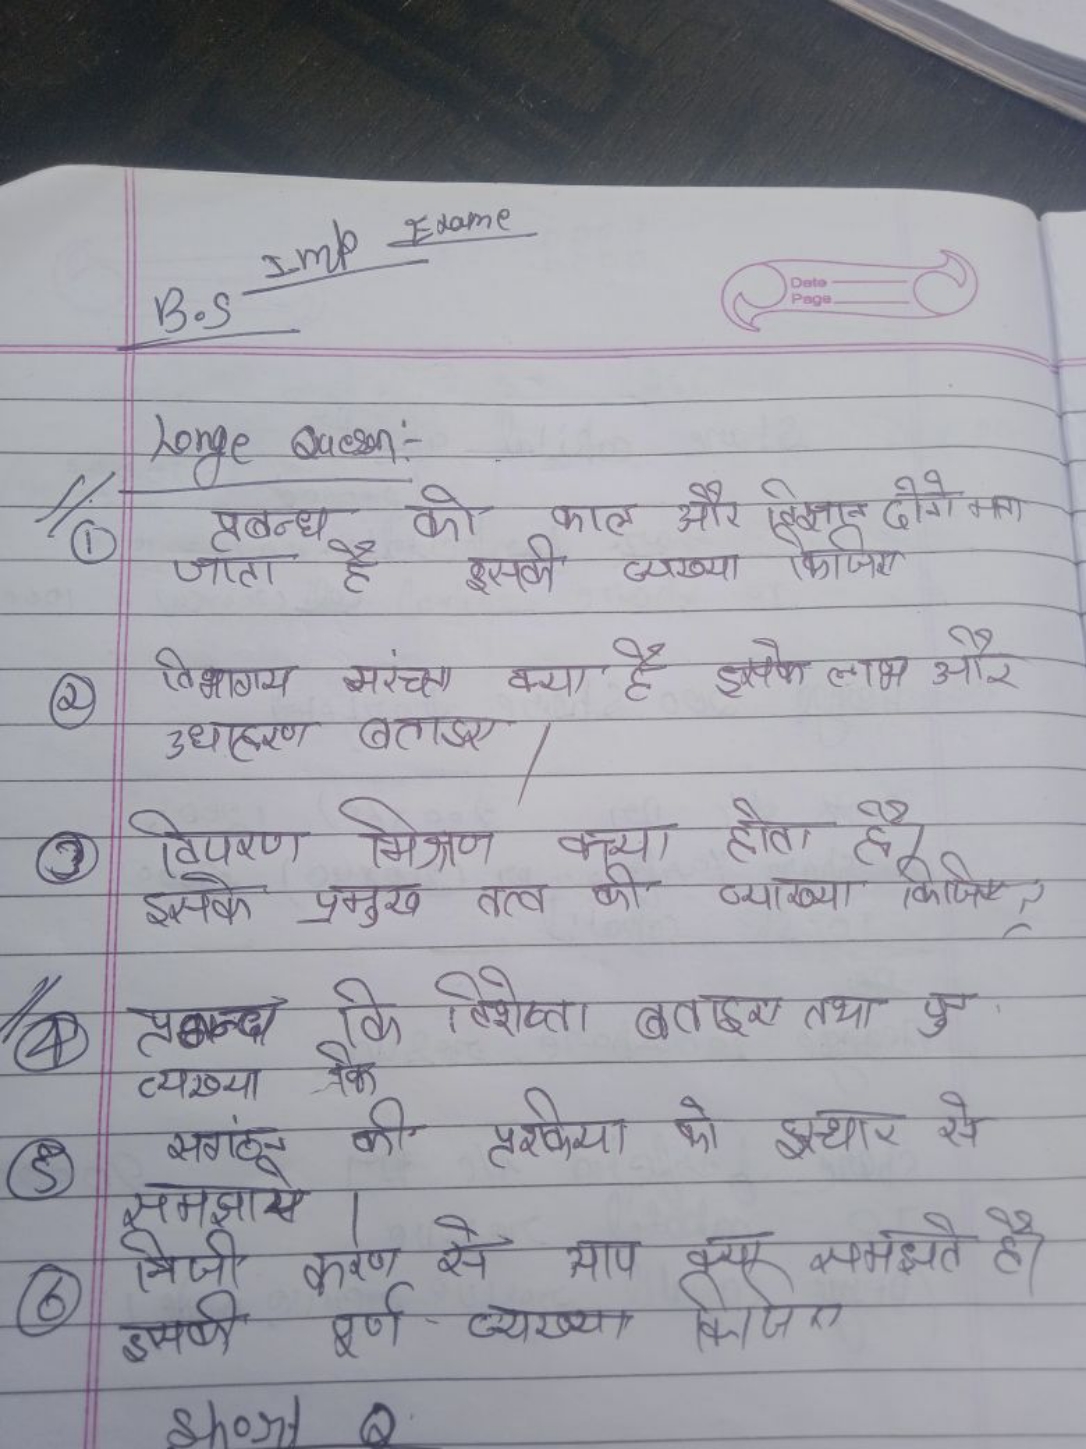 Imp Exame
B.S
Date
Page
Longe Quesn:-
① प्रबन्ध को काल और विज्ञान दोनो माना
जाता है इसकी व्यख्या किजिए
② विभागय सरंचना क्या है इसके लाभ और
उधाहरण बताइए /
③ विपरण मिश्रण क्या होता है,
इसके प्रमुख तत्व की व्याख्या किजिए?
④ प्रबन्ध कि विशेष्ता बताइए तथा
व्यख्या
⑤ सगंठन की प्रकिया को से
समझाये |
⑥ निजी करण से आप क्या समझते है?
इसकी पूर्ण व्यख्या किजिए
Short Q.